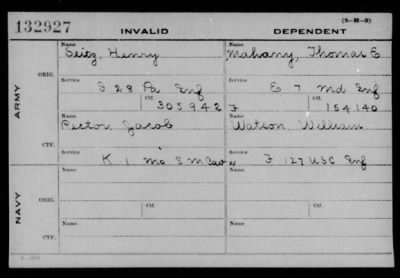 (3-H-3)
132927 INVALID DEPENDENT
Name Name
Seitz, Henry Mahany, Thomas E
ORIG.
Service Service
I 28 Pa Inf E 7 Md Inf
Ctf. Ctf.
305942 154140
ARMY
Name Name
Rector, Jacob Watson William
CTF.
Service Service
K 1 Mo S M Cav F 127 USC Inf
Name Name
ORIG.
Ctf. Ctf.
NAVY
Name Name
CTF.